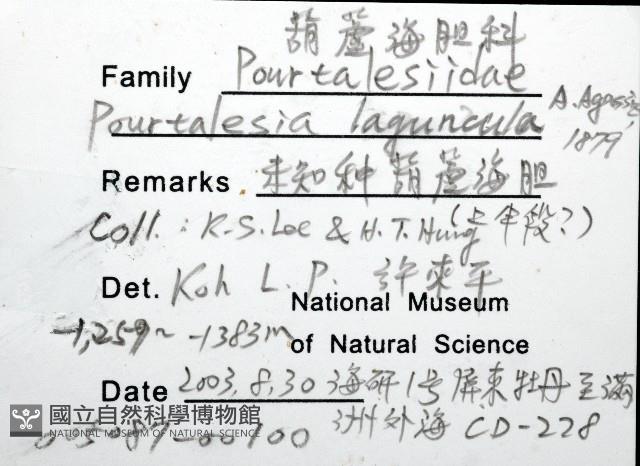 葫蘆海胆科
Family Pourtalesiidae
Pourtalesia laguncula A. Agassiz, 1879
Remarks 未知种葫蘆海胆
Coll. : K.S. Lee & H.T. Hung (上半段?)
Det. Koh L.P. 許來平
National Museum
-1,259~ -1383m
of Natural Science
Date 2003.8.30 海研1号屏東牡丹至滿
洲外海 CD-228
國立自然科學博物館
NATIONAL MUSEUM OF NATURAL SCIENCE